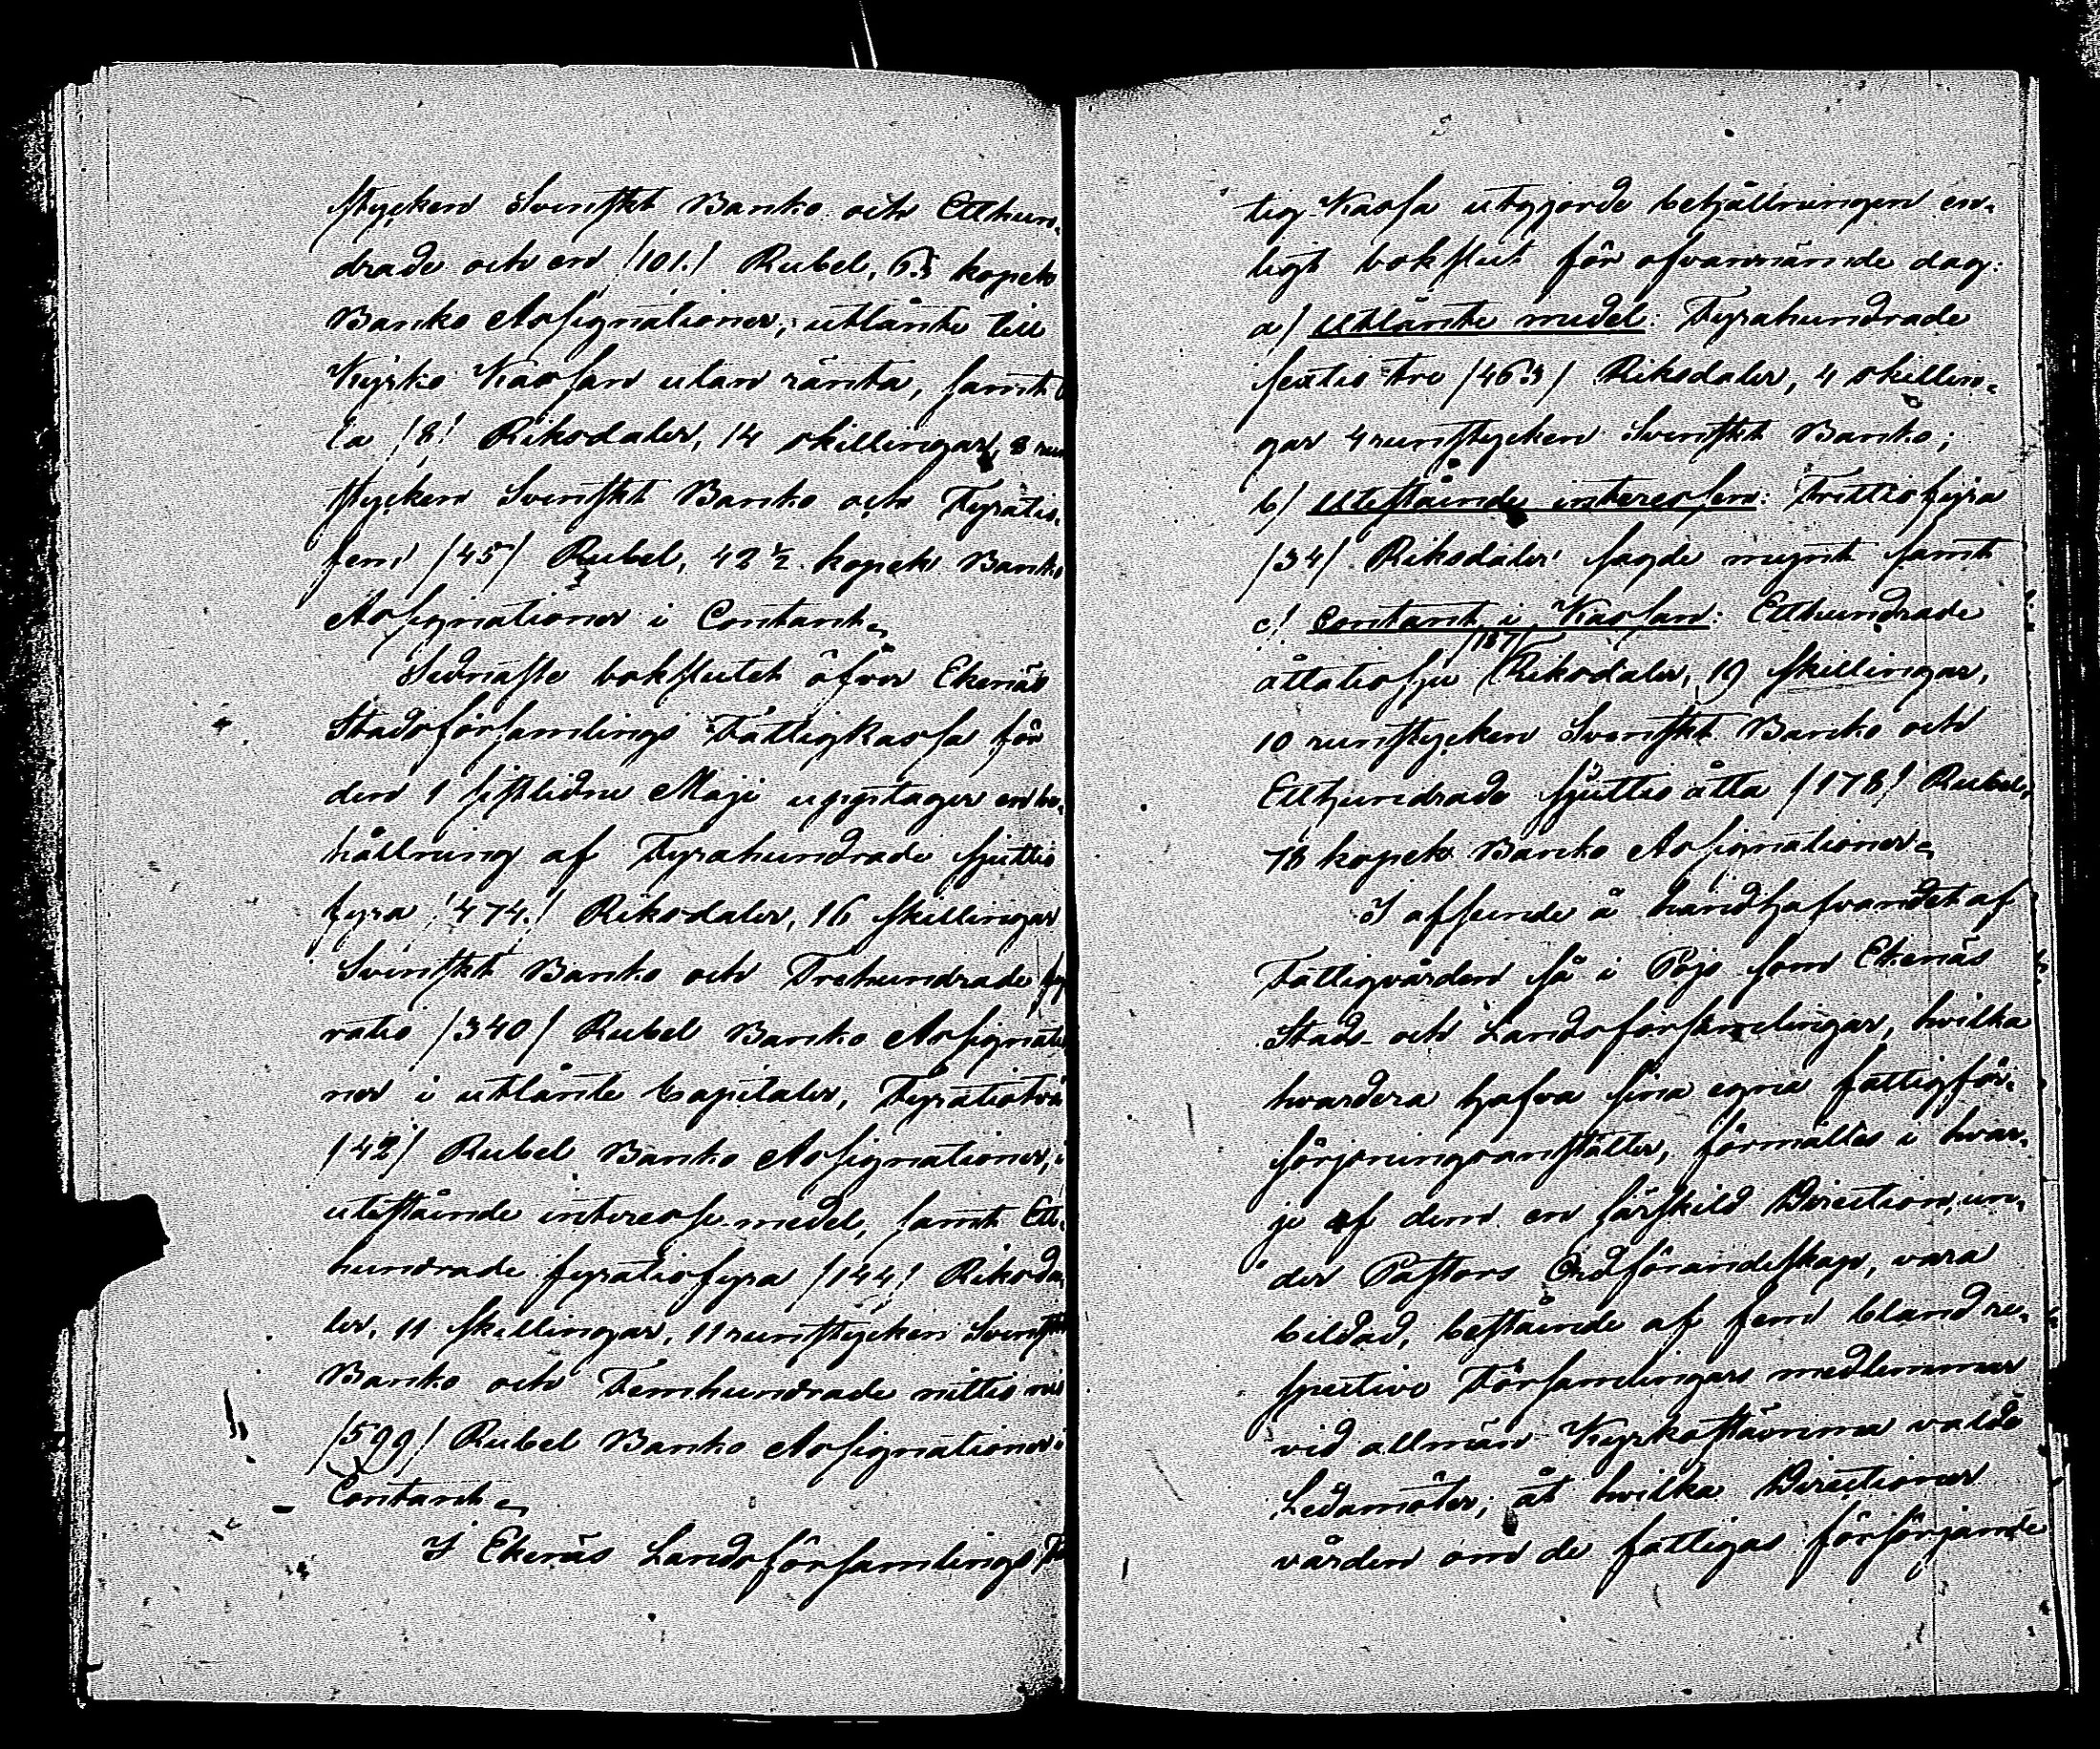 stycken Svenskt Banko och Etthun-
drade och en /101./ Rubel, 63 kopek
Banko Assignationer, utlånte till
Kyrko Kassan utan ränta, samt
ta /8/ Riksdaler, 14 skillingar, 8 run
stycken Svenskt Banko och Fyratio-
fem /45/ Rubel, 42 ½ kopek Banko
Assignationer i Contant.
Sednaste bokslutet öfver Ekenäs
Stadsförsamlings Fattigkassa för
den 1 sistlidne Maji upptager en be-
hållning af Fyrahundrade sjuttio
fyra /474./ Riksdaler, 16 skillingar
Svenskt Banko och Trehundrade fy
ratio /340/ Rubel Banko Assignatio
ner i utlånte Capitaler, Fyratiotvå
/42/ Rubel Banko Assignationer, i
utestående interesse medel, samt Ett-
hundrade fyratiofyra /144/ Riksda
ler, 11 skillingar, 11 runstycken Svenskt
Banko och Femhundrade nittio nio
/599/ Rubel Banko Assignationer i
Contant.
I Ekenäs Landsförsamlings Fat
tig Kassa utgjorde behållningen en-
ligt bokslut för ofvannämde dag:
a/ Utlånte medel: Fyrahundrade
sextio tre /463/ Riksdaler, 4 skillin-
gar 4 runstycken Svenskt Banko;
b/ Utestående interessen: Trettiofyra
/34/ Riksdaler sagde mynt samt
c/ Contant i Kassan: Etthundrade
åttatiosju /187/ Riksdaler, 19 skillingar,
10 runstycken Svenskt Banko och
Etthundrade sjuttio åtta /178/ Rubel,
78 kopek Banko Assignationer.
I afseende å handhafvandet af
Fattigvården så i Pojo som Ekenäs
Stads- och Landsförsamlingar, hvilka
hvardera hafva sina egna fattigför-
sörjningsanstalter, förmältes i hvar-
je af dem en särskild Direction, un-
der Pastors Ordförandeskap, vara
bildad, bestående af fem bland re-
spective Församlingars medlemmar
vid allmän Kyrkostämma valde
Ledamöter; åt hvilka Directioner
vården om de fattigas försörjande